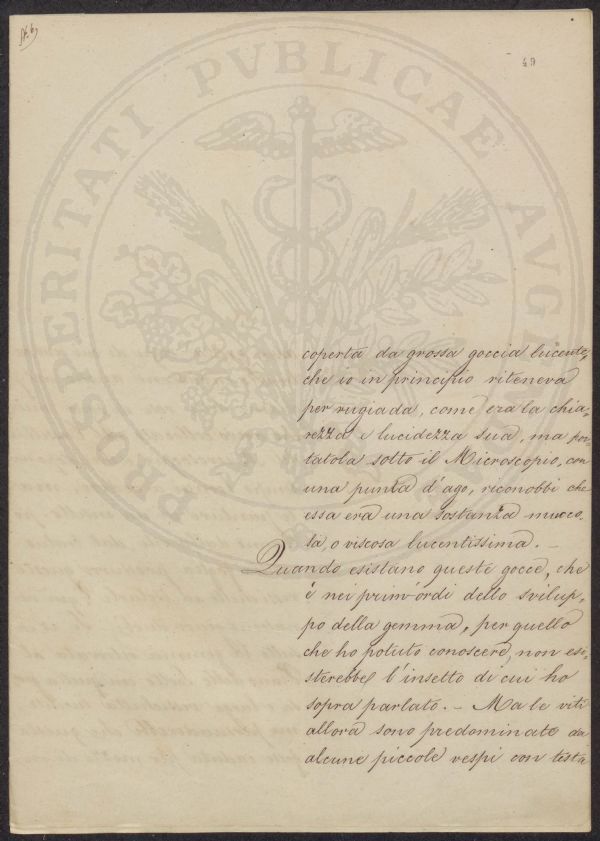 49
PROSPERITATI PVBLICAE AVGENDAE
coperta da grossa goccia lucente,
che io in principio riteneva
per rugiada, come era la chia=
rezza e lucidezza sua, ma por
tatola sotto il Microscopio, con
una punta d'ago, riconobbi che
essa era una sostanza mucco.
sa, o viscosa lucentissima. _
Quando esistano queste gocce, che
è nei primordi dello svilup=
po della gemma, per quello
che ho potuto conoscere, non esi=
sterebbe l'insetto di cui ho
sopra parlato. _ Ma le viti
allora sono predominate da
alcune piccole vespi con testa